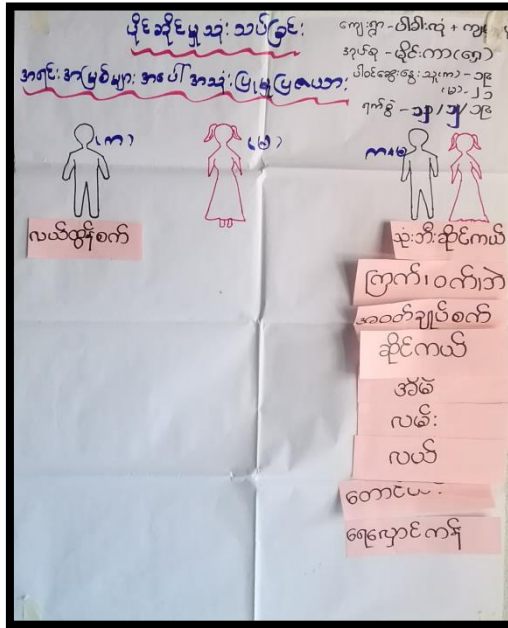 ပိုင်ဆိုင်မှုသုံးသပ်ခြင်း
အရင်းအမြစ်များအပေါ် အသုံးပြုမှုပြဇယား
ကျေးရွာ - ပါခါးကုံ + ကျ
အုပ်စု - မိုင်းကာ(ရှေ့)
ပါဝင်ဆွေးနွေးသူ(က) - ၁၉
(မ) - ၂၁
ရက်စွဲ -
(က)
(မ)
က+မ
လယ်ထွန်စက်
သုံးဘီးဆိုင်ကယ်
ကြက်၊ဝက်၊ဘဲ
အဝတ်ချုပ်စက်
ဆိုင်ကယ်
အိမ်
လမ်း
လယ်
ရေလှောင်ကန်